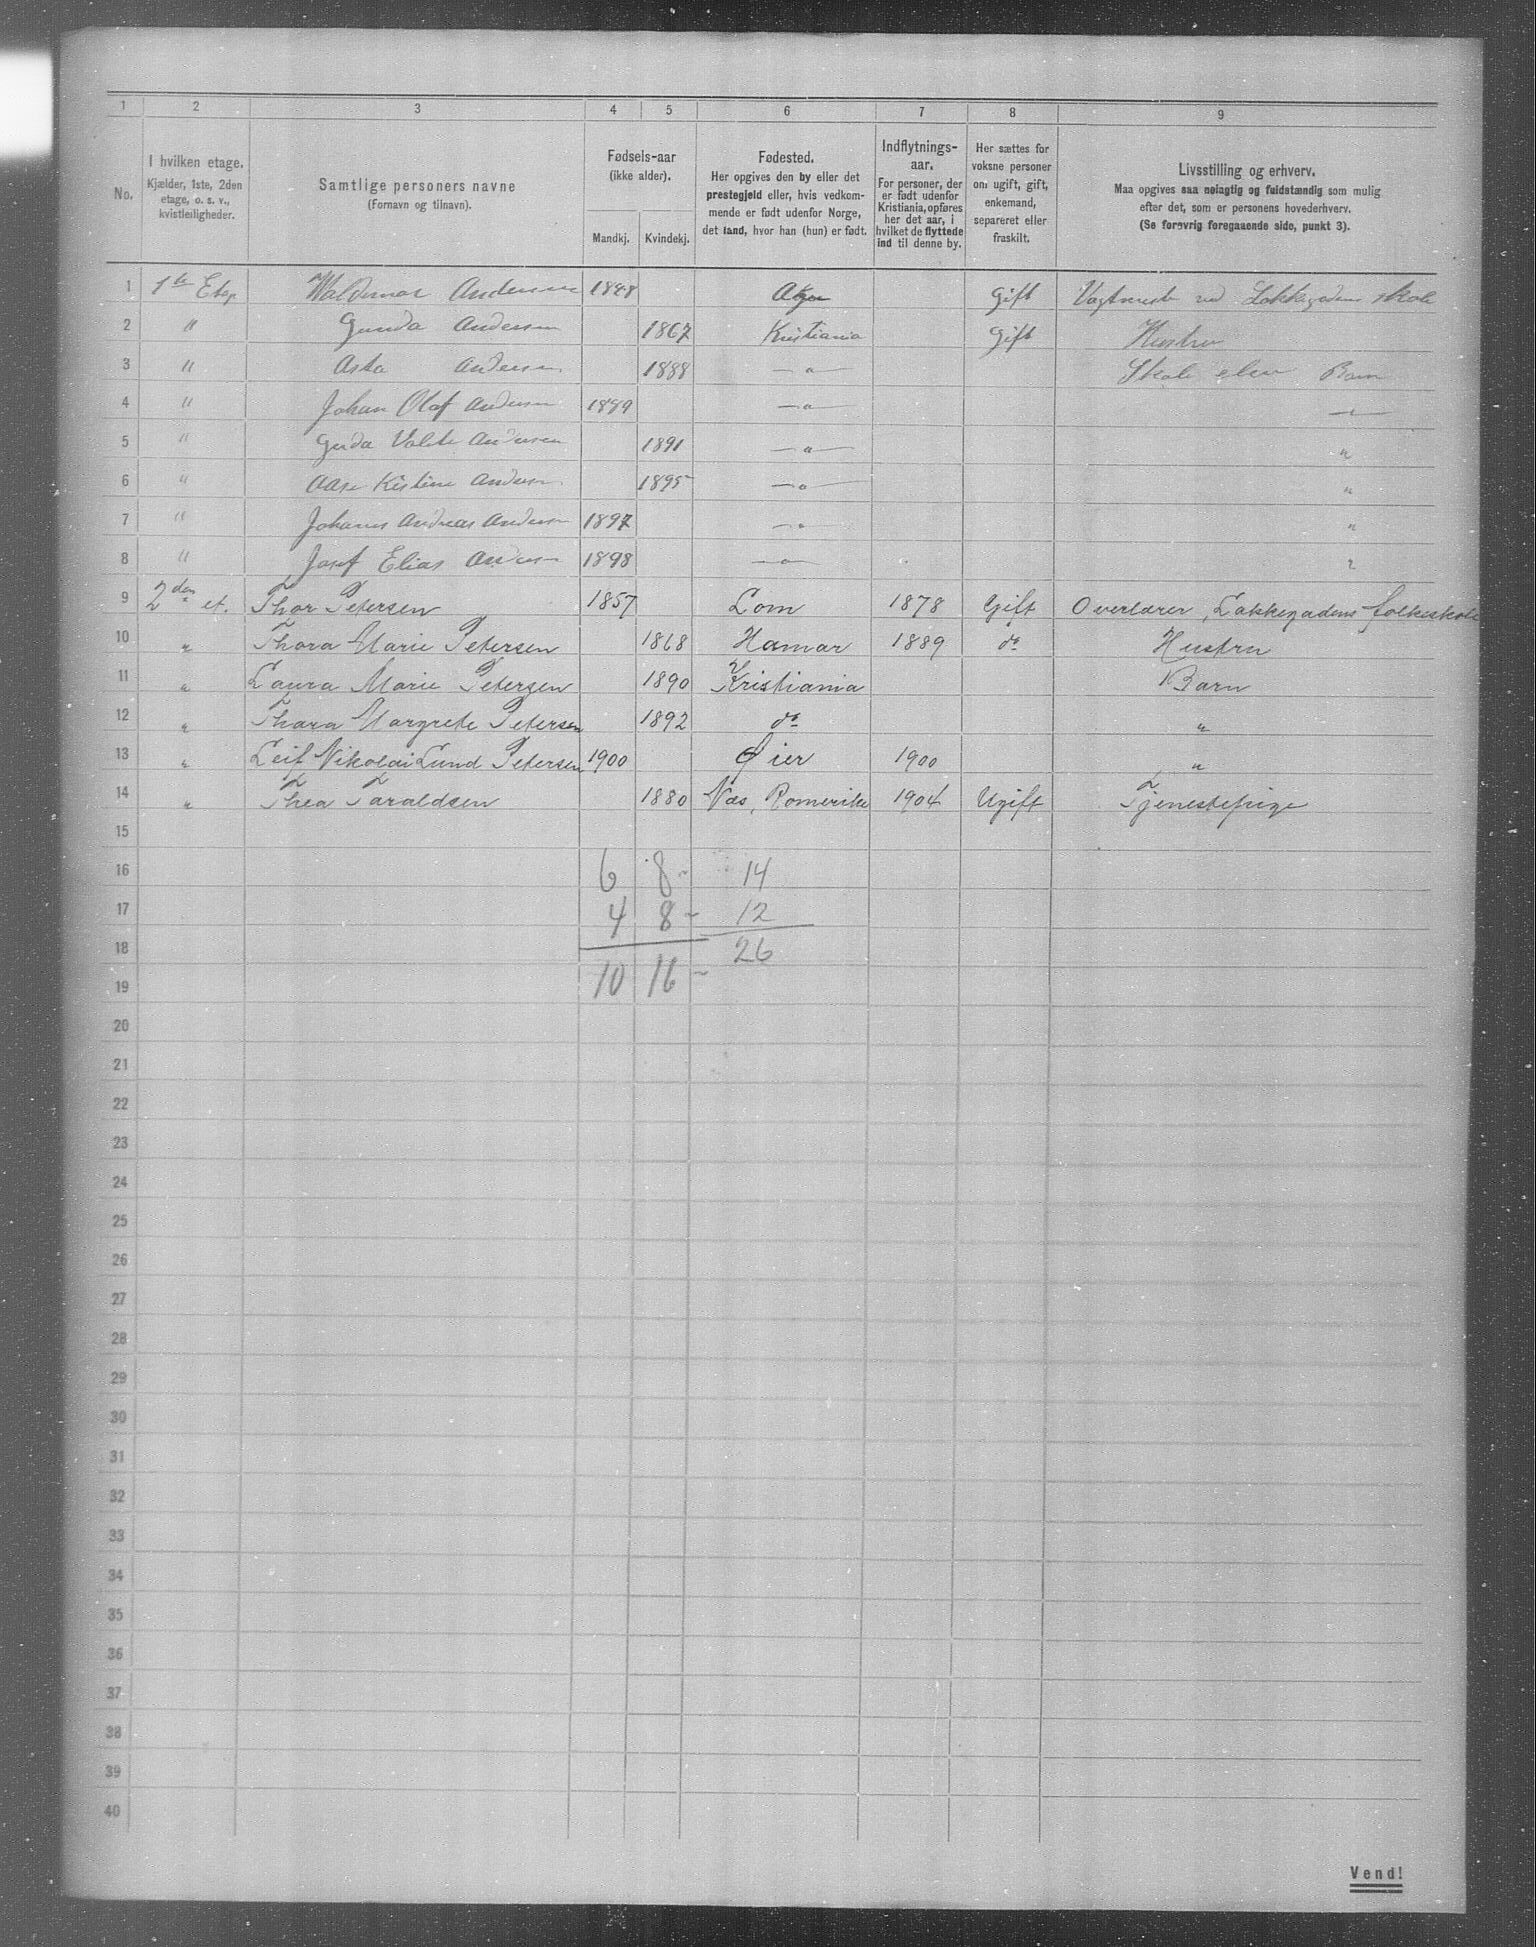 1 2 3 4 5 6 7 8 9
No.
I hvilken etage.
Kjælder, 1ste, 2den
etage, o. s. v.,
kvistleiligheder.
Samtlige personers navne
(Fornavn og tilnavn).
Fødsels-aar
(ikke alder).
Mandkj. Kvindekj.
Fødested.
Her opgives den by eller det
prestegjeld eller, hvis vedkom-
mende er født udenfor Norge,
det land, hvor han (hun) er født.
Indflytnings-
aar.
For personer, der
er født udenfor
Kristiania, opføres
her det aar, i
hvilket de flyttede
ind til denne by.
Her sættes for
voksne personer
om ugift, gift,
enkemand,
separeret eller
fraskilt.
Livsstilling og erhverv.
Maa opgives saa nøiagtig og fuldstændig som mulig
efter det, som er personens hovederhverv.
(Se forøvrig foregaaende side, punkt 3).
1 1ste Etag Waldemar Andersen 1848 Aker Gift Vagtmester ved Lakkegadens skole
2 " Gunda Andersen 1867 Kristiania Gift Hustru
3 " Asta Andersen 1888 — " — Skole elev Barn
4 " Johan Olaf Andersen 1889 — " — — " —
5 " Gerda Andersen 1891 — " — "
6 " Aase Kistine Andersen 1895 — " — "
7 " Johannes Andreas Andersen 1897 — " — "
8 " Josef Elias Andersen 1898 — " — "
9 2den et. Thor Petersen 1857 Lom 1878 Gift Overlærer, Lakkegadens folkeskole
10 " Thora Marie Petersen 1868 Hamar 1889 do Hustru
11 " Laura Marie Petersen 1890 Kristiania Barn
12 " Thora Margrete Petersen 1892 do "
13 " Leif Nikolai Lund Petersen 1900 Øier 1900 "
14 " Thea Taraldsen 1880 Næs, Romerike 1904 Ugift Tjenestepige
15
16 6 8 - 14
17 4 8 - 12
18 26
19 10 16 -
20
21
22
23
24
25
26
27
28
29
30
31
32
33
34
35
36
37
38
39
40
Vend!